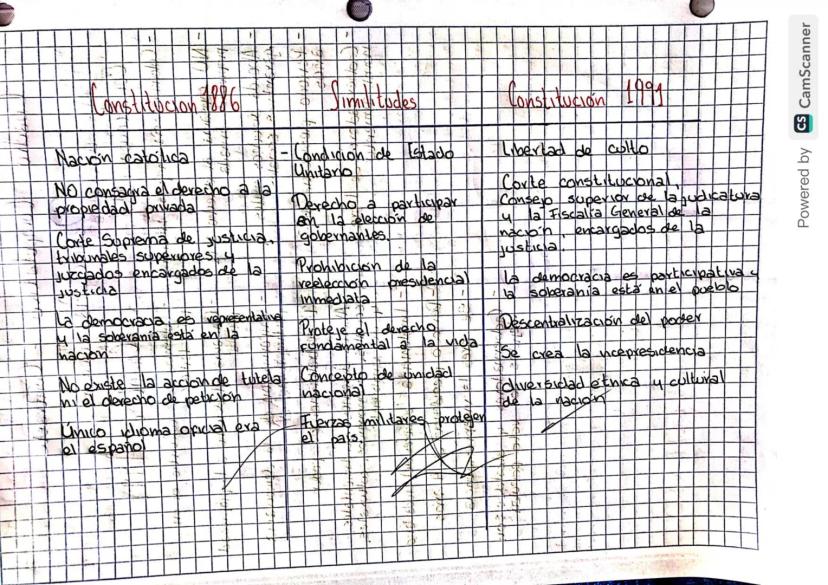 Constitución 1886
Nación católica
NO consagra el derecho a la
propiedad privada
Corte Suprema de justicia,
tribunales superiores, y
juzgados encargados de la
justicia
La democracia es representativa
y la soberanía está en la
nación
No existe la acción de tutela
ni el derecho de petición
Único idioma oficial era
el español
Similitudes
- Condición de Estado
Unitario
Derecho a participar
en la elección de
gobernantes.
Prohibición de la
reelección presidencial
inmediata
Proteje el derecho
fundamental a la vida
Concepto de unidad
nacional
Fuerzas militares protejen
el país.
Constitución 1991
Libertad de culto
Corte constitucional,
Consejo superior de la judicatura
y la Fiscalía General de la
nación, encargados de la
justicia.
La democracia es participativa y
la soberanía está en el pueblo
Descentralización del poder
Se crea la vicepresidencia
diversidad étnica y cultural
de la nación
Powered by CS CamScanner